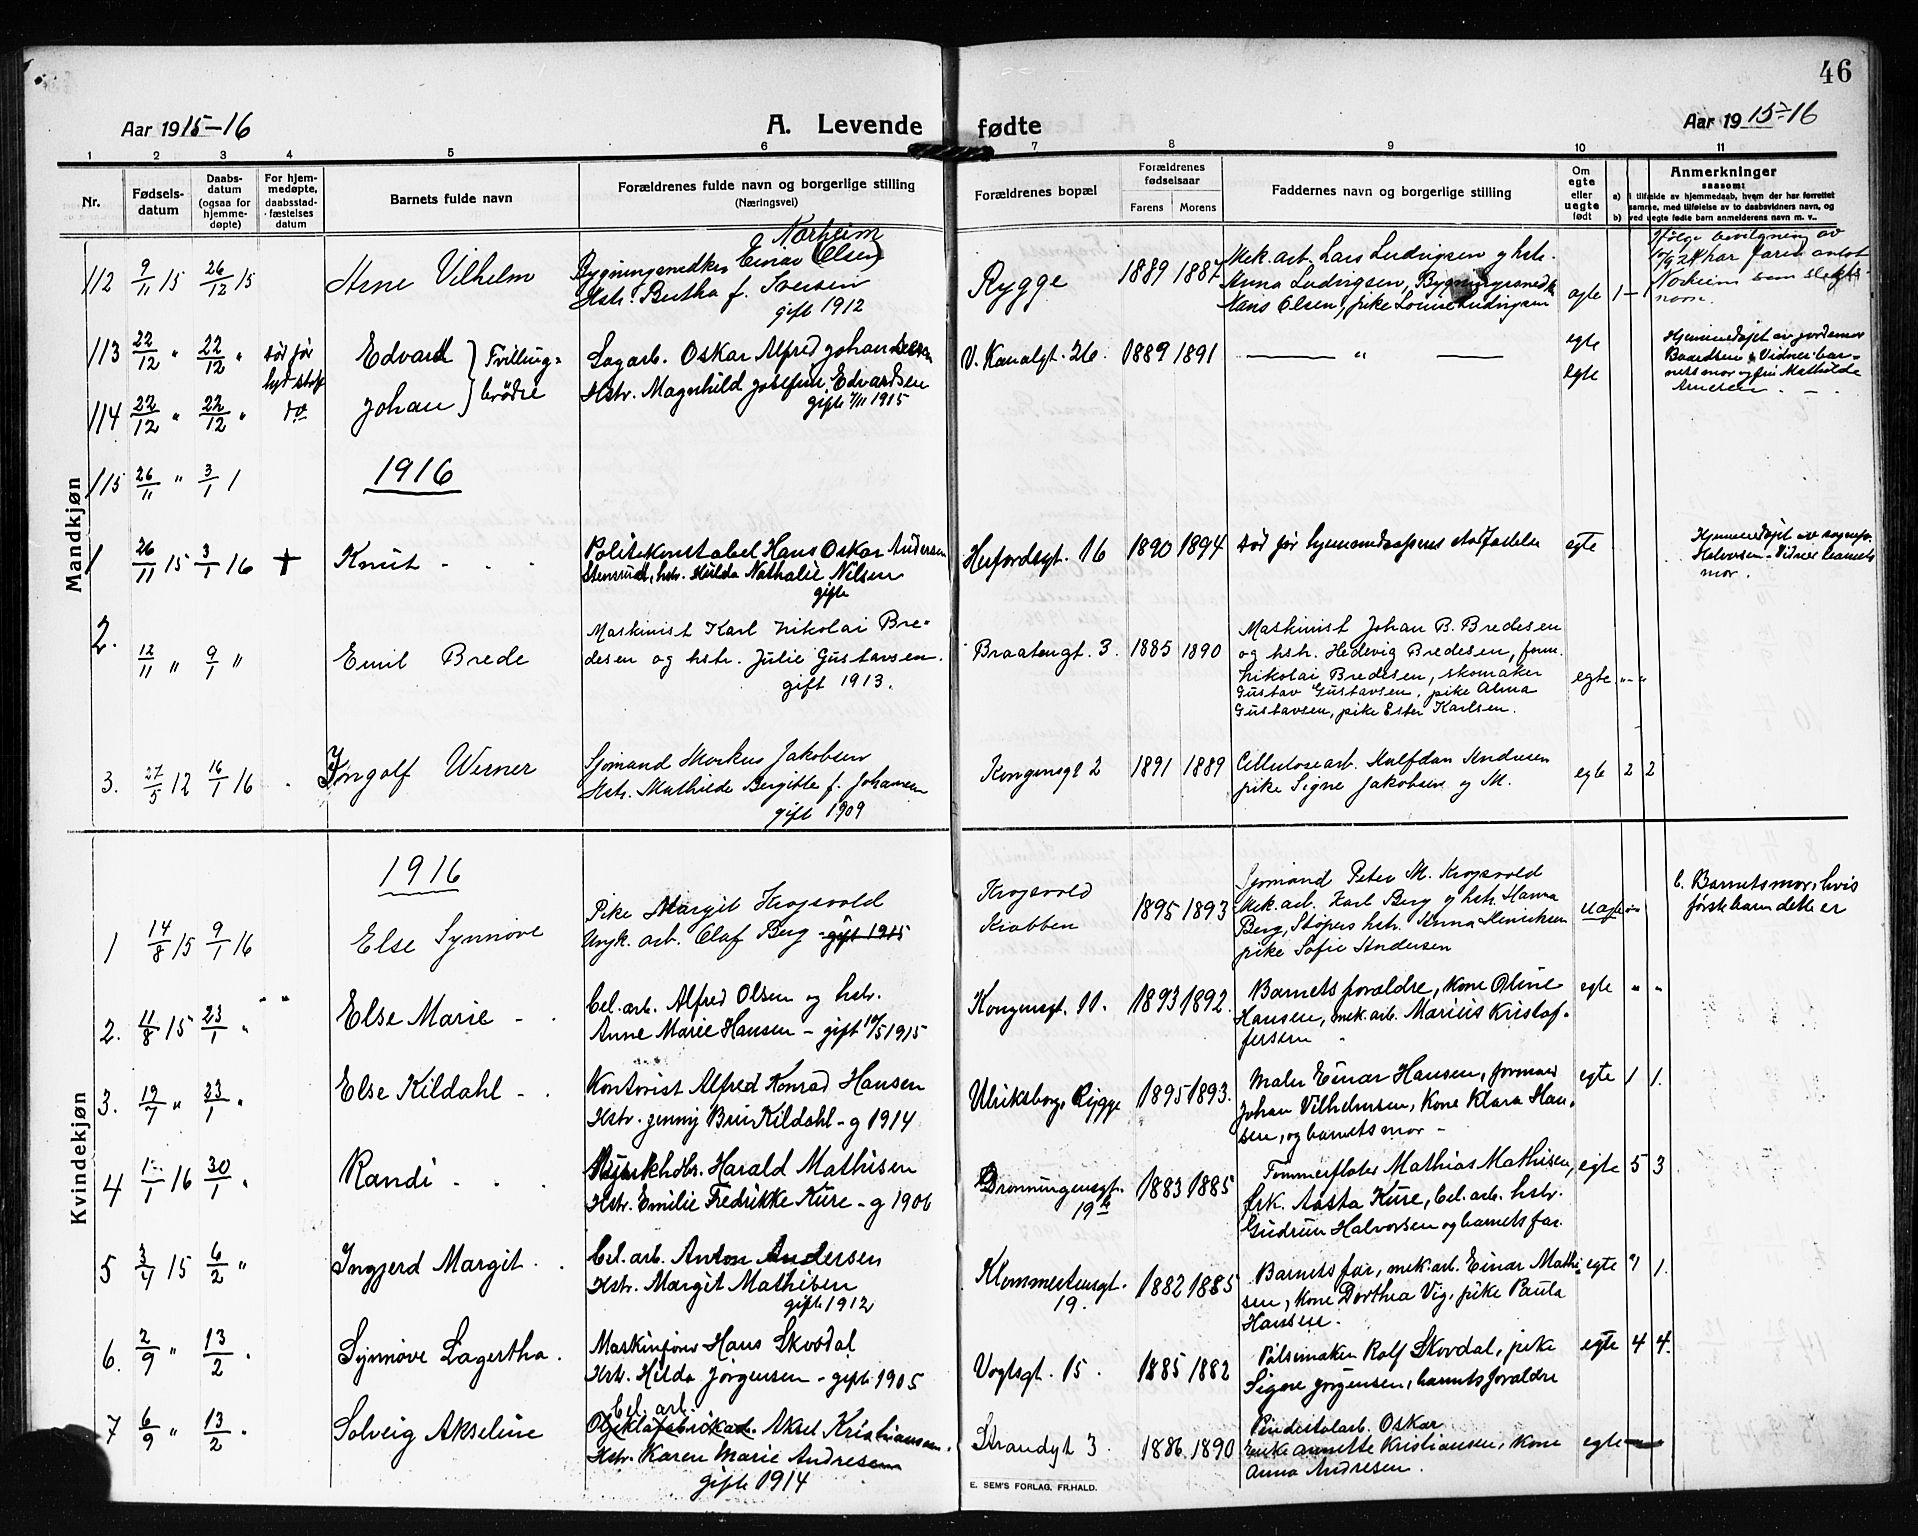 46
Aar 1915-16
A. Levende fødte
Aar 1915-16
1 2 3 4 5 6 7 8 9 10 11
Nr.
Fødsels-
datum
Daabs-
datum
(ogsaa for
hjemme-
døpte)
For hjem-
medøpte,
daabsstad-
fæstelses
datum
Barnets fulde navn
Forældrenes fulde navn og borgerlige stilling
(Næringsvei)
Forældrenes bopæl
Forældrenes
fødselsaar
Farens Morens
Faddernes navn og borgerlige stilling
Om
egte
eller
uegte
født
a)
b)
Anmerkninger
saasom:
I tilfælde av hjemmedaab, hvem der har forrettet
samme, med tilføielse av to daabsvidners navn, og
ved uegte fødte barn anmelderens navn m. v..
Mandkjøn
112 9/11 15 26/12 15 Arne Vilhelm
Norheim
Bygningsnedker Einar (Olsen)
Hstr. Bertha f. Iversen
gift 1912
Rygge 1889 1887
Mek. arb. Lars Ludvigsen og hstr.
Anna Ludvigsen, Bygningssnedk
Hans Olsen, pike Louise Ludvigsen
egte 1 – 1
Ifølge bevilgning av
10/9 24 har faren antat
Norheim som slegts
navn.
113 22/12 " 22/12 " død før
Edvard } Tvilling-
Johan } brødre
114 22/12 " 22/12 " do
Sagarb. Oskar Alfred Johannesen
Hstr. Magnhild Josefine Edvardsen
gift 7/11 1915
V. Kanalgt. 26. 1889 1891 — " —
egte
egte
Hjemmedøpt av jordemor
Baardsen. Vidner bar-
nets mor og frk Mathilde
Arnesen
115 26/11 " 3/1 1 1916
1 26/11 15 3/1 16 + Knut
Politikonstabel Hans Oskar Andersen
Stensrud, hstr. Hulda Nathalie Nilsen
gifte
Herfordsgt. 16 1890 1894 død før hjemmedaapens stadfæstelse egte
Hjemmedøpt av sognepr.
Halvorsen. Vidner barnets
mor.
2. 12/11 " 9/1 " Emil Brede
Maskinist Karl Nikolai Bre-
desen og hstr. Julie Gustavsen.
gift 1913.
Braatengt. 3. 1885 1890
Maskinist Johan B. Bredesen
og hstr. Hedevig Bredesen, form.
Nikolai Bredesen, skomaker
Gustav Gustavsen, pike Alma
Gustavsen, pike Ester Karlsen.
egte. " – "
3. 27/5 12 16/1 16 Ingolf Werner
Sjømand Markus Jakobsen
Hstr. Mathilde Bergitte f. Johansen
gift 1909
Kongensgt 2 1891 1889
Cellulosearb. Halfdan Andresen
pike Signe Jakobsen og M.
egte 2 2
Kvindekjøn
1916
1 14/8 15 9/1 16 Else Synnøve
Pike Margit Krogsvold
Ungk. arb. Olaf Berg - gift 1915
Krogsvold
Krabben
1895 1893
Sjømand Peter M. Krogsvold
Mek. arb. Karl Berg og hstr. Hanna
Berg, Støpers hstr. Anna Henriksen
pike Sofie Andersen
uegte
b. Barnets mor, hvis
første barn dette er
2. 11/8 15 23/1 " Else Marie
Cel. arb. Alfred Olsen og hstr.
Anne Marie Hansen – gift 10/5 1915
Kongensgt. 11. 1893 1892
Barnets forældre, kone Oline
Hansen, mek. arb. Marius Kristof-
fersen
egte " "
3. 19/7 " 23/1 " Else Kildahl
Kontorist Alfred Konrad Hansen
Hstr. Jenny Brun Kildahl – g 1914
Ulriksborg, Rygge 1895 1893.
Maler Einar Hansen, formand
Johan Vilhelmsen, kone Klara Han-
sen, og barnets mor –
egte 1 1.
4 1/1 16 30/1 " Randi
Harald Mathisen
Hstr. Emilie Fredrikke Kure – g 1906
Dronningensgt.
19 b
1883 1885
Tømmerfløter Mathias Mathisen,
frk. Aasta Kure, cel. arb. hstr.
Gudrun Halvorsen og barnets far.
egte 5 3
5 3/4 15 6/2 " Ingjerd Margit
Cel. arb. Anton Andersen
Hstr. Margit Mathisen
gift 1912
Klommestensgt.
19.
1882 1885
Barnets far, mek. arb. Einar Mathi-
sen, kone Dorthea Vig, pike Paula
Hansen.
egte " 1.
6. 2/9 " 13/2 " Synnøve Lagertha.
Maskinfører Hans Skovdal
Hstr. Hilda Jørgensen – gift 1905
Vogtsgt. 15. 1885 1882
Pølsemaker Rolf Skovdal, pike
Signe Jørgensen, barnets forældre
egte 4 4.
7 6/9 " 13/2 Solveig Akseline
Cel. arb.
Aksel Kristiansen.
Hstr. Karen Marie Andresen
gift 1914
Strandgt 3. 1886 1890
Oskar
Annette Kristiansen, kone
Anna Andresen.
egte
E. SEM'S FORLAG, FR.HALD.